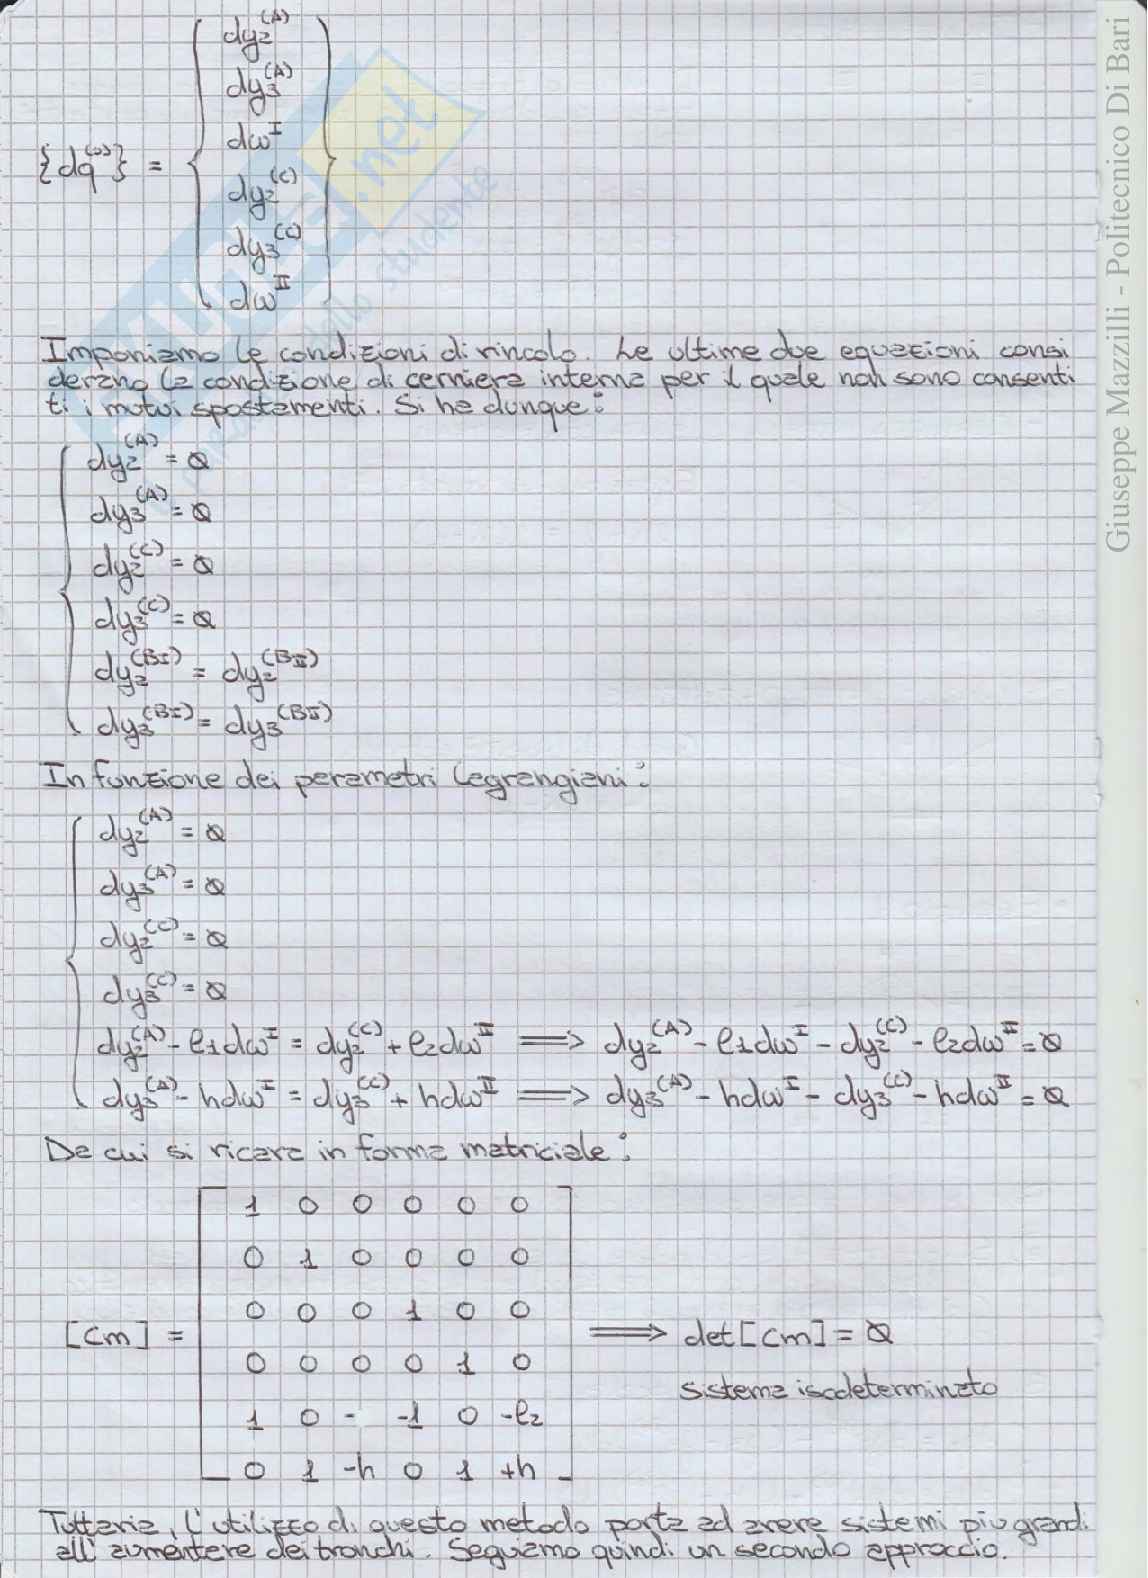 {dq⁽⁰⁾} =
dy₂⁽ᴬ⁾
dy₃⁽ᴬ⁾
dωᴵ
dy₂⁽ᶜ⁾
dy₃⁽ᶜ⁾
dωᴵᴵ
Imponiamo le condizioni di vincolo. Le ultime due equazioni consi
derano la condizione di cerniera interna per il quale non sono consenti
ti i mutui spostamenti. Si ha dunque:
dy₂^(A) = 0
dy₃^(A) = 0
dy₂^(C) = 0
dy₃^(C) = 0
dy₂^(BI) = dy₂^(BII)
dy₃^(BI) = dy₃^(BII)
In funzione dei parametri lagrangiani:
dy₂^(A) = 0
dy₃^(A) = 0
dy₂^(C) = 0
dy₃^(C) = 0
dy₂^(A) - l₁dω^I = dy₂^(C) + l₂dω^II ⟹ dy₂^(A) - l₁dω^I - dy₂^(C) - l₂dω^II = 0
dy₃^(A) - hdω^I = dy₃^(C) + hdω^II ⟹ dy₃^(A) - hdω^I - dy₃^(C) - hdω^II = 0
Da cui si ricava in forma matriciale:
1 0 0 0 0 0
0 1 0 0 0 0
0 0 0 1 0 0
[Cm] = ⟹ det[Cm] = 0
0 0 0 0 1 0
sistema isodeterminato
1 0 - -1 0 -l₂
0 1 -h 0 1 +h
Tuttavia, l'utilizzo di questo metodo porta ad avere sistemi più grandi
all'aumentare dei tronchi. Seguiamo quindi un secondo approccio.
Giuseppe Mazzilli - Politecnico Di Bari
.net
dello studente